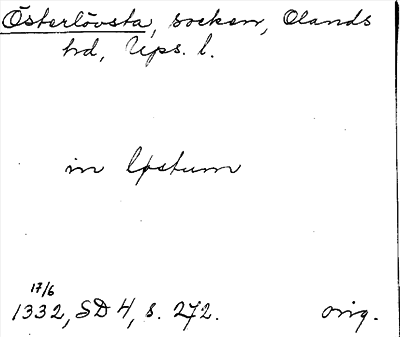 Österlövsta, socken, Olands
hd, Upps. l.
in Løstum
17/6
1332, SD 4, s. 272. orig.